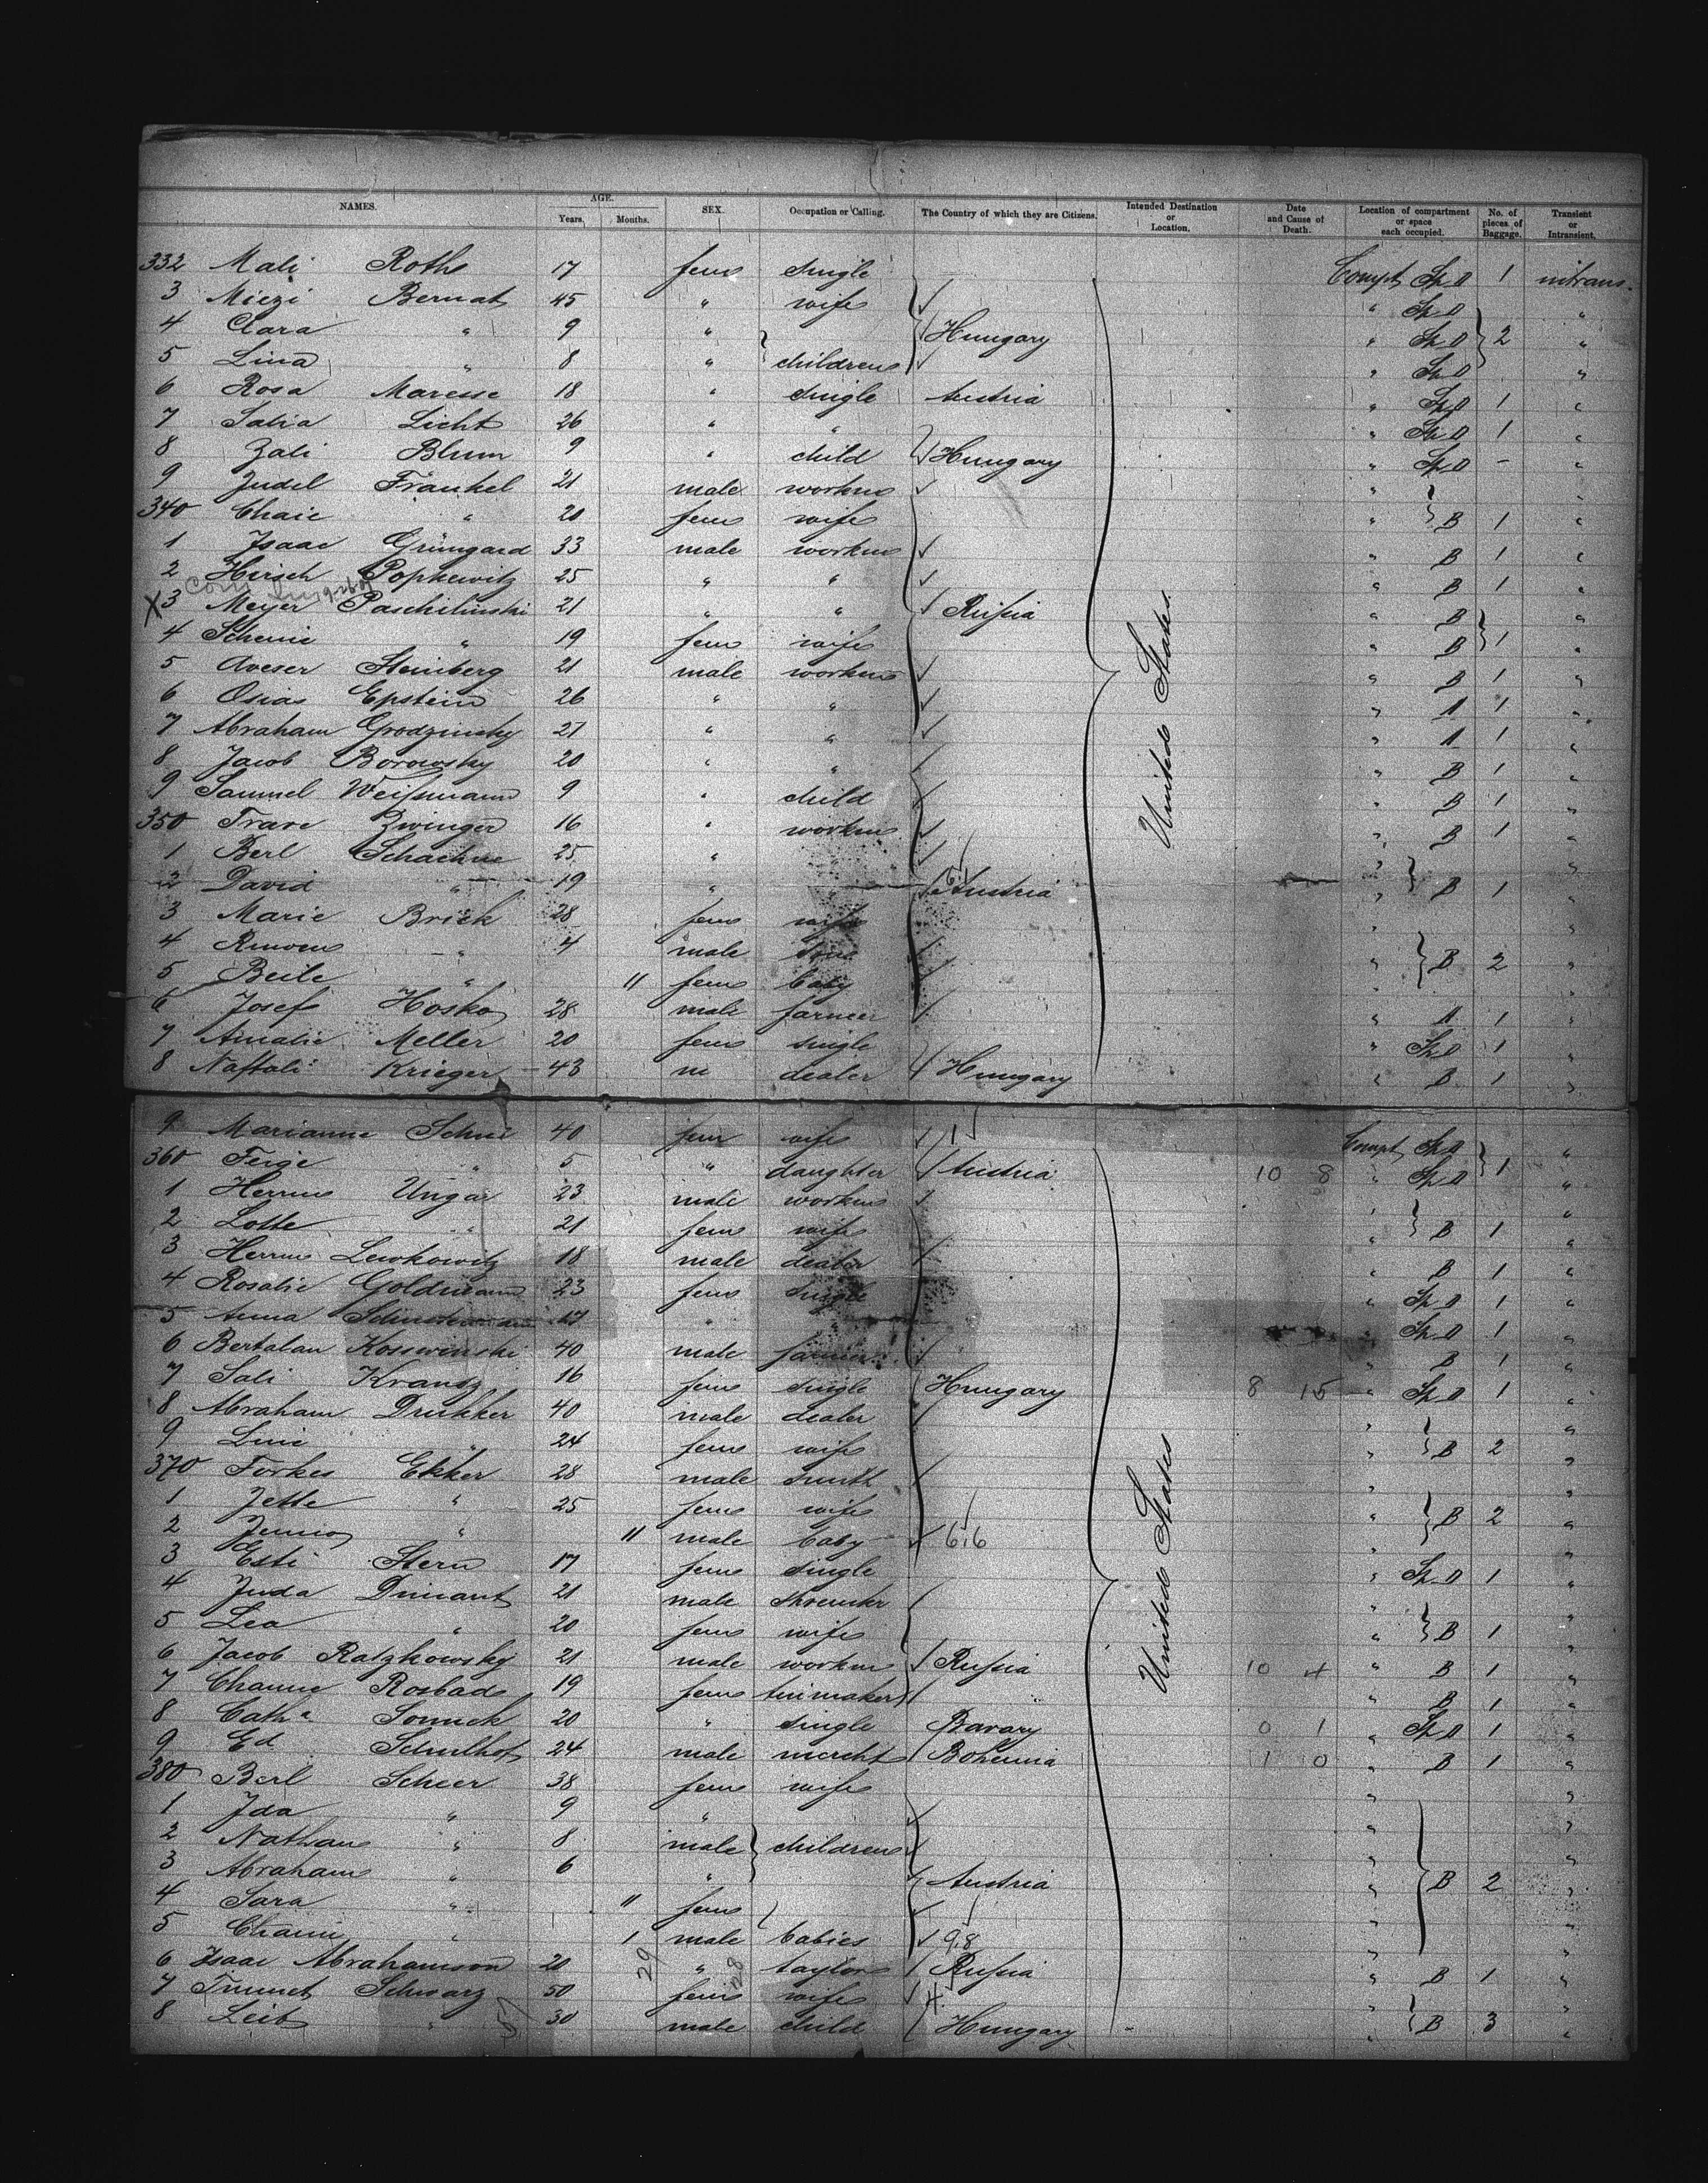 NAMES. AGE. Years. Months. SEX. Occupation or Calling. The Country of which they are Citizens. Intended Destination or Location. Date and Cause of Death. Location of compartment or space each occupied. No. of pieces of Baggage. Transient or Intransient.
332 Mali Roth 17 fem single Compt Sp D 1 intrans.
3 Miezi Bernat 45 " wife " Sp D "
4 Clara " 9 " Hungary " Sp D 2 "
5 Lina " 8 " children " Sp D "
6 Rosa Maresse 18 " single Austria " Sp D 1 "
7 Salia Licht 26 " " " Sp D 1 "
8 Zali Blum 9 " child Hungary " Sp D - "
9 Judel Fränkel 21 male workm " "
340 Chaie " 20 fem wife " B 1 "
1 Isaac Grüngard 33 male workm " B 1 "
2 Hirsch Popkewitz 25 " " " B 1 "
X 3 Meyer Paschilinski 21 " " Rußia " B "
4 Scheine " 19 fem wife " B 1 "
5 Aveser Steinberg 21 male workm " B 1 "
6 Osias Epstein 26 " " " A 1 "
7 Abraham Grodzinsky 21 " " " A 1 "
8 Jacob Borowsky 20 " " " B 1 "
9 Samuel Weißmann 9 " child " B 1 "
350 Trare Zwinger 16 " workm " B 1 "
1 Berl Schachne 25 " " "
2 David " 19 " Austria " B 1 "
3 Marie Brick 28 fem wife " "
4 " 4 male " B 2 "
5 Beile " 11 fem baby "
6 Josef Hosko 28 male farmer " A 1 "
7 Amalie Meller 20 fem single " Sp D 1 "
8 Naftali Krieger 43 m dealer Hungary " B 1 "
United States
9 Marianne 40 fem wife Compt Sp D "
360 Feige " 5 " daughter Austria 10 8 " Sp D 1 "
1 Herm Ungar 23 male workm " "
2 Lotte " 21 fem wife " B 1 "
3 Herm Lewkowitz 18 male dealer " B 1 "
4 Rosalie Goldmann 23 fem single " Sp D 1 "
5 Anna 17 " Sp D 1 "
6 Bertalan Kosswinski 40 male farmer " B 1 "
7 Sali Krantz 16 fem single Hungary 8 15 " Sp D 1 "
8 Abraham Drukker 40 male dealer " "
9 Linie " 24 fem wife " B 2 "
370 Forkes Ekker 28 male smith " "
1 Jette " 25 fem wife " B 2 "
2 " 11 male baby 6.6 " "
3 Esti Stern 17 fem single " Sp D 1 "
4 Juda 21 male " "
5 Lea " 20 fem wife " B 1 "
6 Jacob Ratzkowsky 21 male workm Rußia 10 4 " B 1 "
7 Channe Rosbads 19 fem " B 1 "
8 Catha Sonnek 20 " single Bavary 0 1 " Sp D 1 "
9 Ed Schulhof 24 male mercht Bohemia 1 0 " B 1 "
380 Berl Scheer 38 fem wife " "
1 Ida " 9 " " "
2 Nathan " 8 male children " "
3 Abraham " 6 " Austria " B 2 "
4 Sara " 11 fem " "
5 Chaim " 1 male babies 9.8 " "
6 Isaac Abrahamson 20 " taylor Rußia " B 1 "
7 Schwarz 50 fem wife 4. " "
8 Leib " 30 male child Hungary " B 3 "
United States
29 28 57